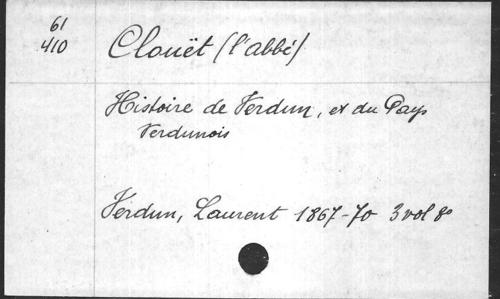 61
410
Clouët (l'abbé)
Histoire de Verdun, et du Pays
Verdunois
Verdun, Laurent 1867-70 3 vol 8o